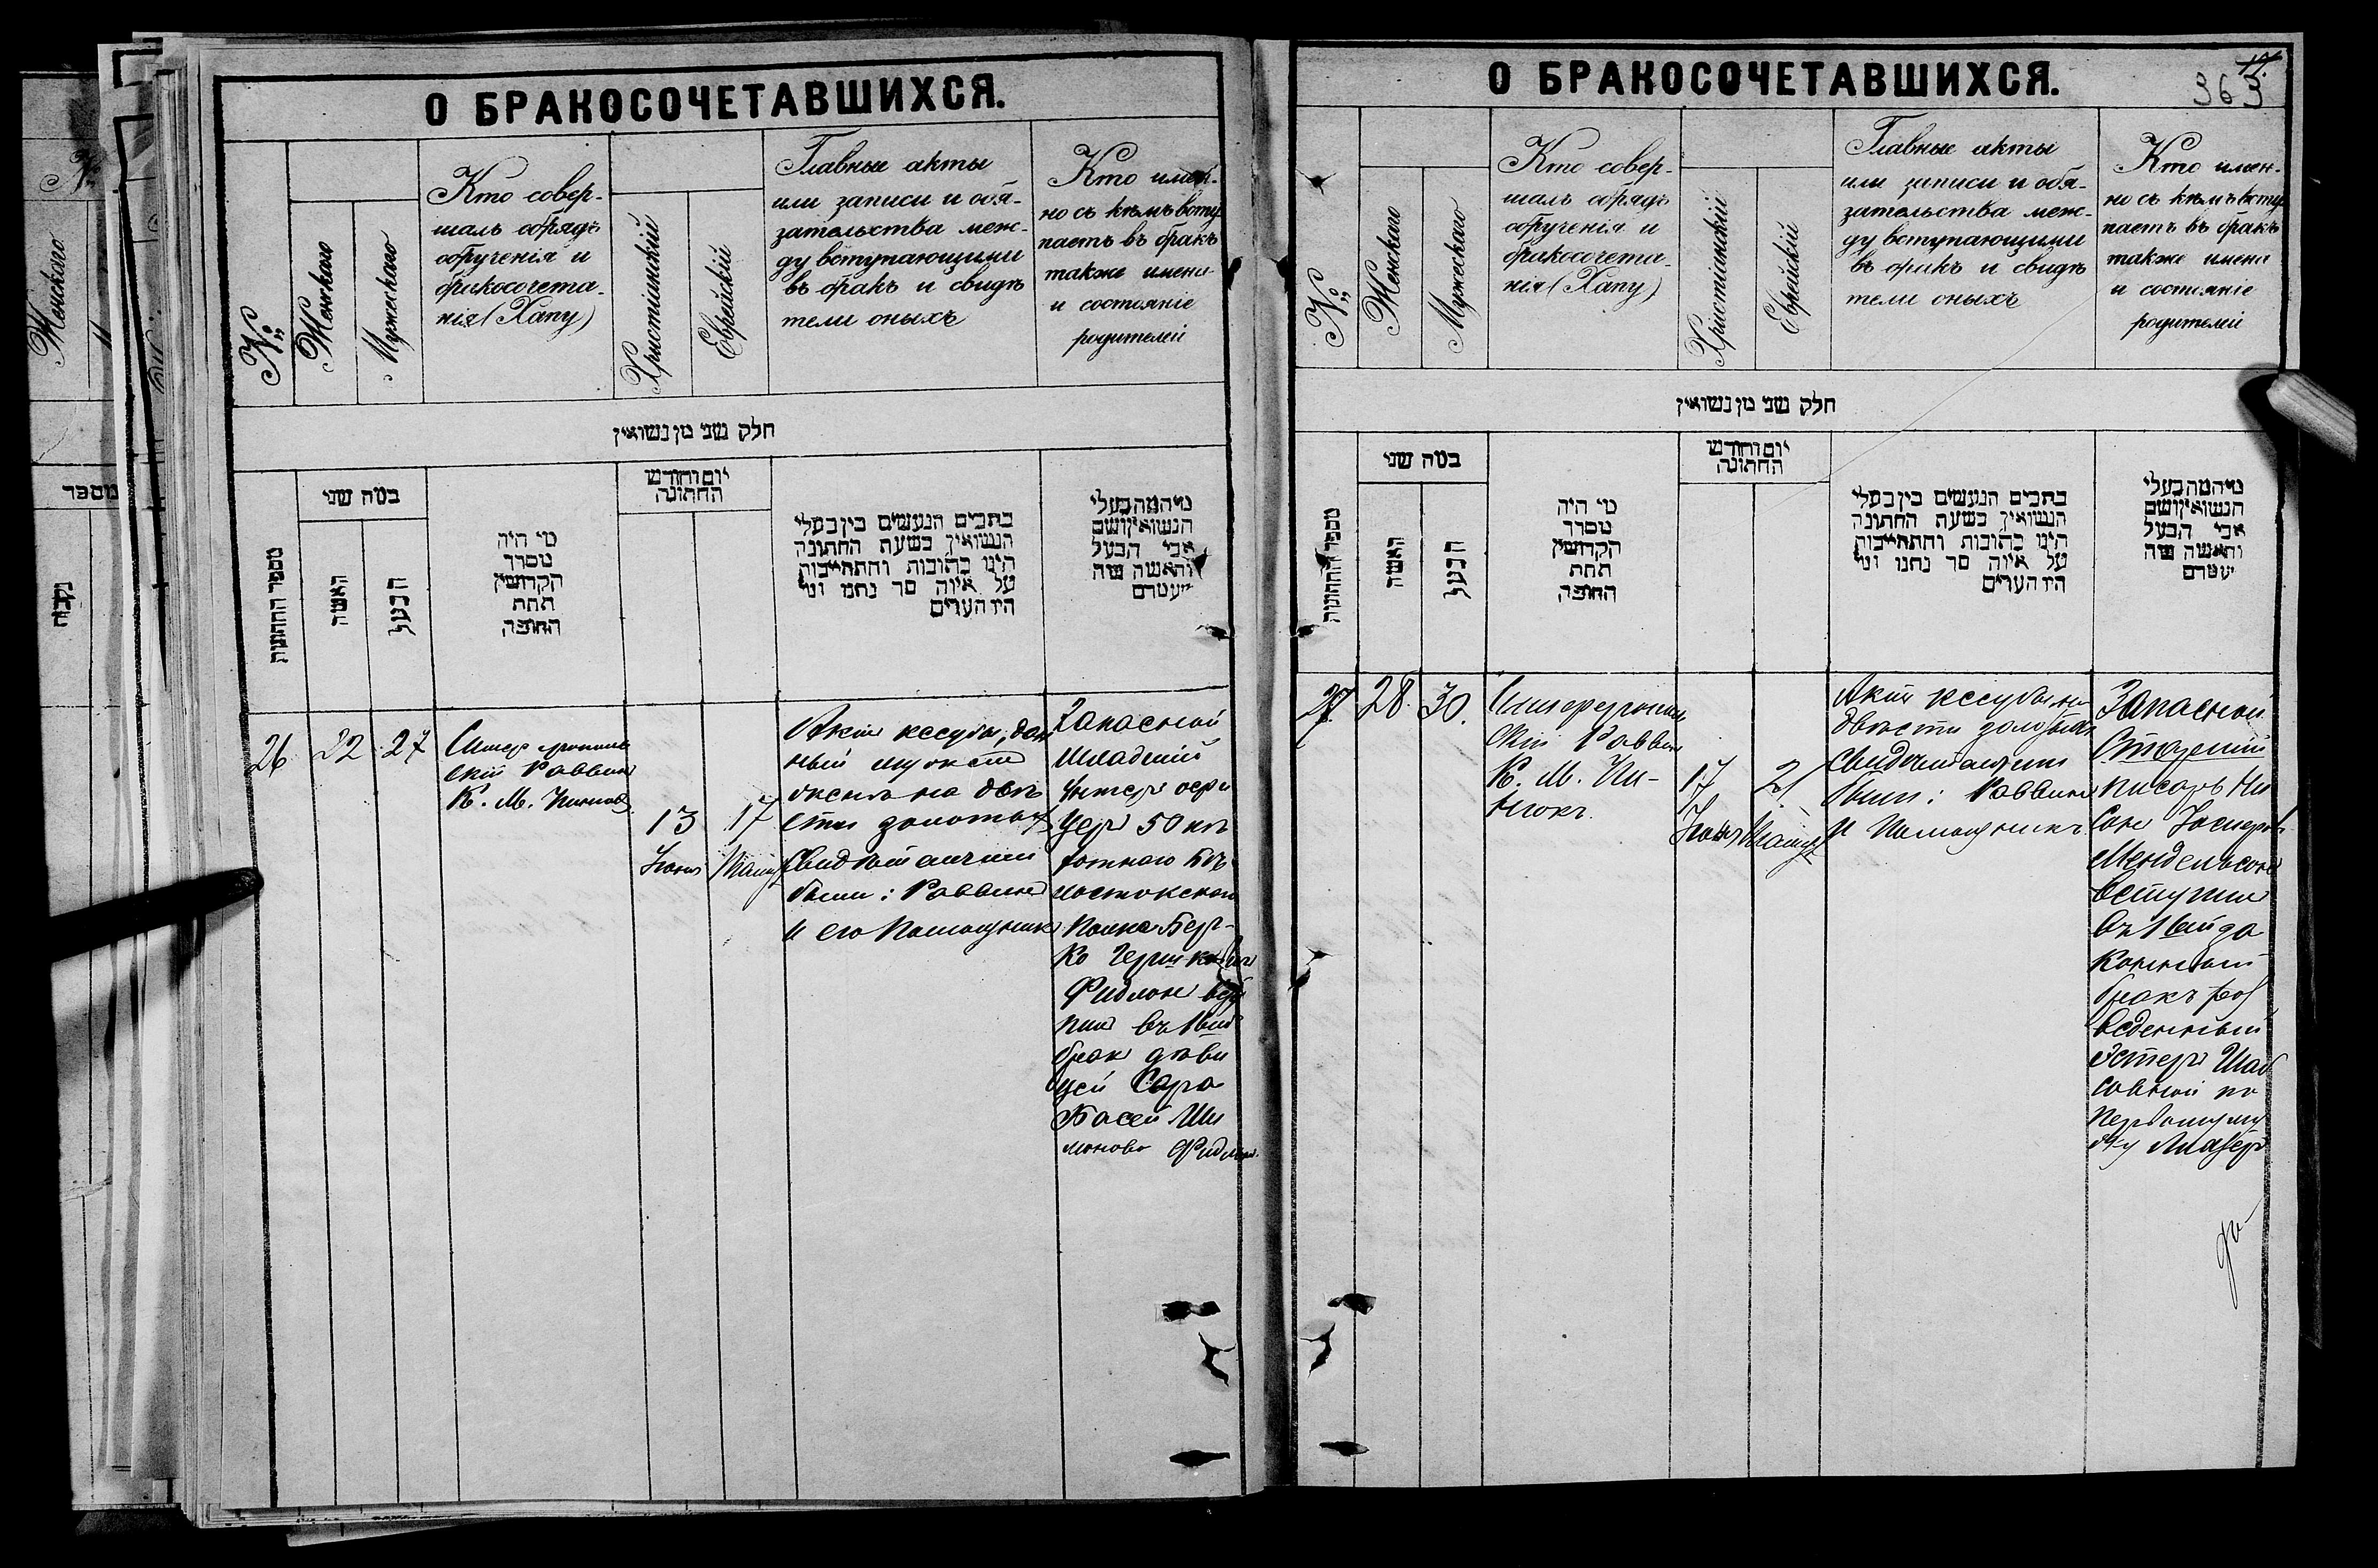 О БРАКОСОЧЕТАВШИХСЯ.
№
Женскаго
Мужескаго
Кто совер-
шалъ обрядъ
обрученія и
бракосочета-
нія (Хапу)
Христіанскій
Еврейскій
Главные акты
или записи и обя-
зательства меж-
ду вступающими
въ бракъ и свидѣ
тели оныхъ
Кто имен-
но съ кѣмъ всту
паетъ въ бракъ
также имена
и состояніе
родителей
חלק שני מן נשואין
מספר החתונות
במה שני
האשה
הבעל
מי היה
מסדר
הקדושין
תחת
החופה
יום וחודש
החתונה
כתבים הנעשים בין בעלי
הנשואין בשעת החתונה
היינו כתובות והתחייבות
על איזה סך נתנו ומי
היו העדים
מי המה בעלי
הנשואין ושם
אבי הבעל
והאשה מה
מעמדם
26
22
27
Симферополь
скій Раввин
К. М. Пинчов
13
Іюня
17
Свидѣтелями
были: Раввинъ
и его Помощникъ
Запасной
Младшій
Унтеръ офи
церъ 50 пѣ
хотнаго Бѣ
лостокскаго
Полка Бер-
ко Гершкович
Фидлон всту
пил въ 1вый
брак дѣви
цей Сара
Басей Ши
моново Фидман.
О БРАКОСОЧЕТАВШИХСЯ.
363
№
Женскаго
Мужескаго
Кто совер-
шалъ обрядъ
обрученія и
бракосочета-
нія (Хапу)
Христіанскій
Еврейскій
Главные акты
или записи и обя-
зательства меж-
ду вступающими
въ бракъ и свидѣ
тели оныхъ
Кто имен-
но съ кѣмъ всту
паетъ въ бракъ
также имена
и состояніе
родителей
חלק שני מן נשואין
מספר החתונות
במה שני
האשה
הבעל
מי היה
מסדר
הקדושין
תחת
החופה
יום וחודש
החתונה
כתבים הנעשים בין בעלי
הנשואין בשעת החתונה
היינו כתובות והתחייבות
על איזה סך נתנו ומי
היו העדים
מי המה בעלי
הנשואין ושם
אבי הבעל
והאשה מה
מעמדם
27
28.
30.
Симферополь
скій Раввин
К. М. Пи-
нчокъ.
17
Іюня
21
двѣсти золотыхъ
Свидѣтелями
были: Раввинъ
и Помощникъ
Запасной
Старшій
писарь Ни
Сон
Мендельсонъ
вступил
въ 1вый за
конный
бракъ раз
веденный
Эстеръ Шаб
совной по
Первому му
жу